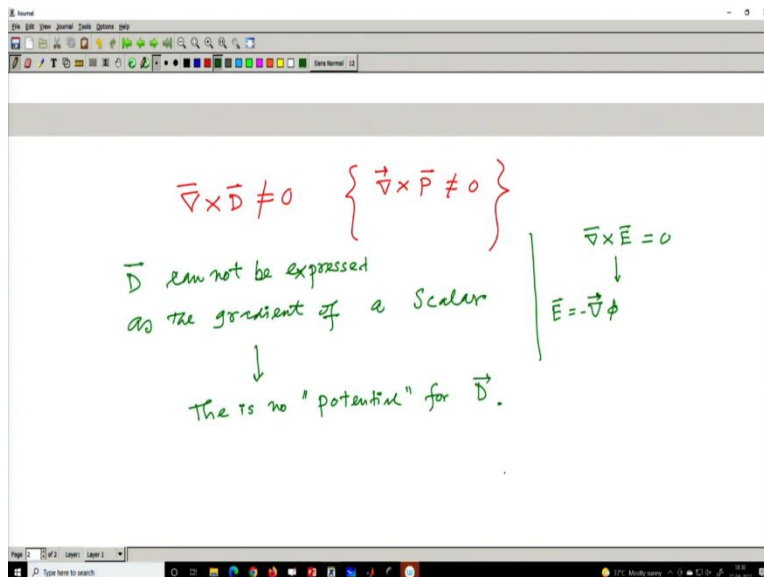 Xournal
File Edit View Journal Tools Options Help
Sans Normal 12
∇̅×D⃗ ≠ 0 { ∇⃗×P̅ ≠ 0 }
∇̅×E̅ = 0
↓
E̅ = -∇⃗ϕ
D̅ can not be expressed
as the gradient of a Scalar
↓
The is no "potential" for D⃗.
Page 2 of 2 Layer: Layer 1
Type here to search
37°C Mostly sunny